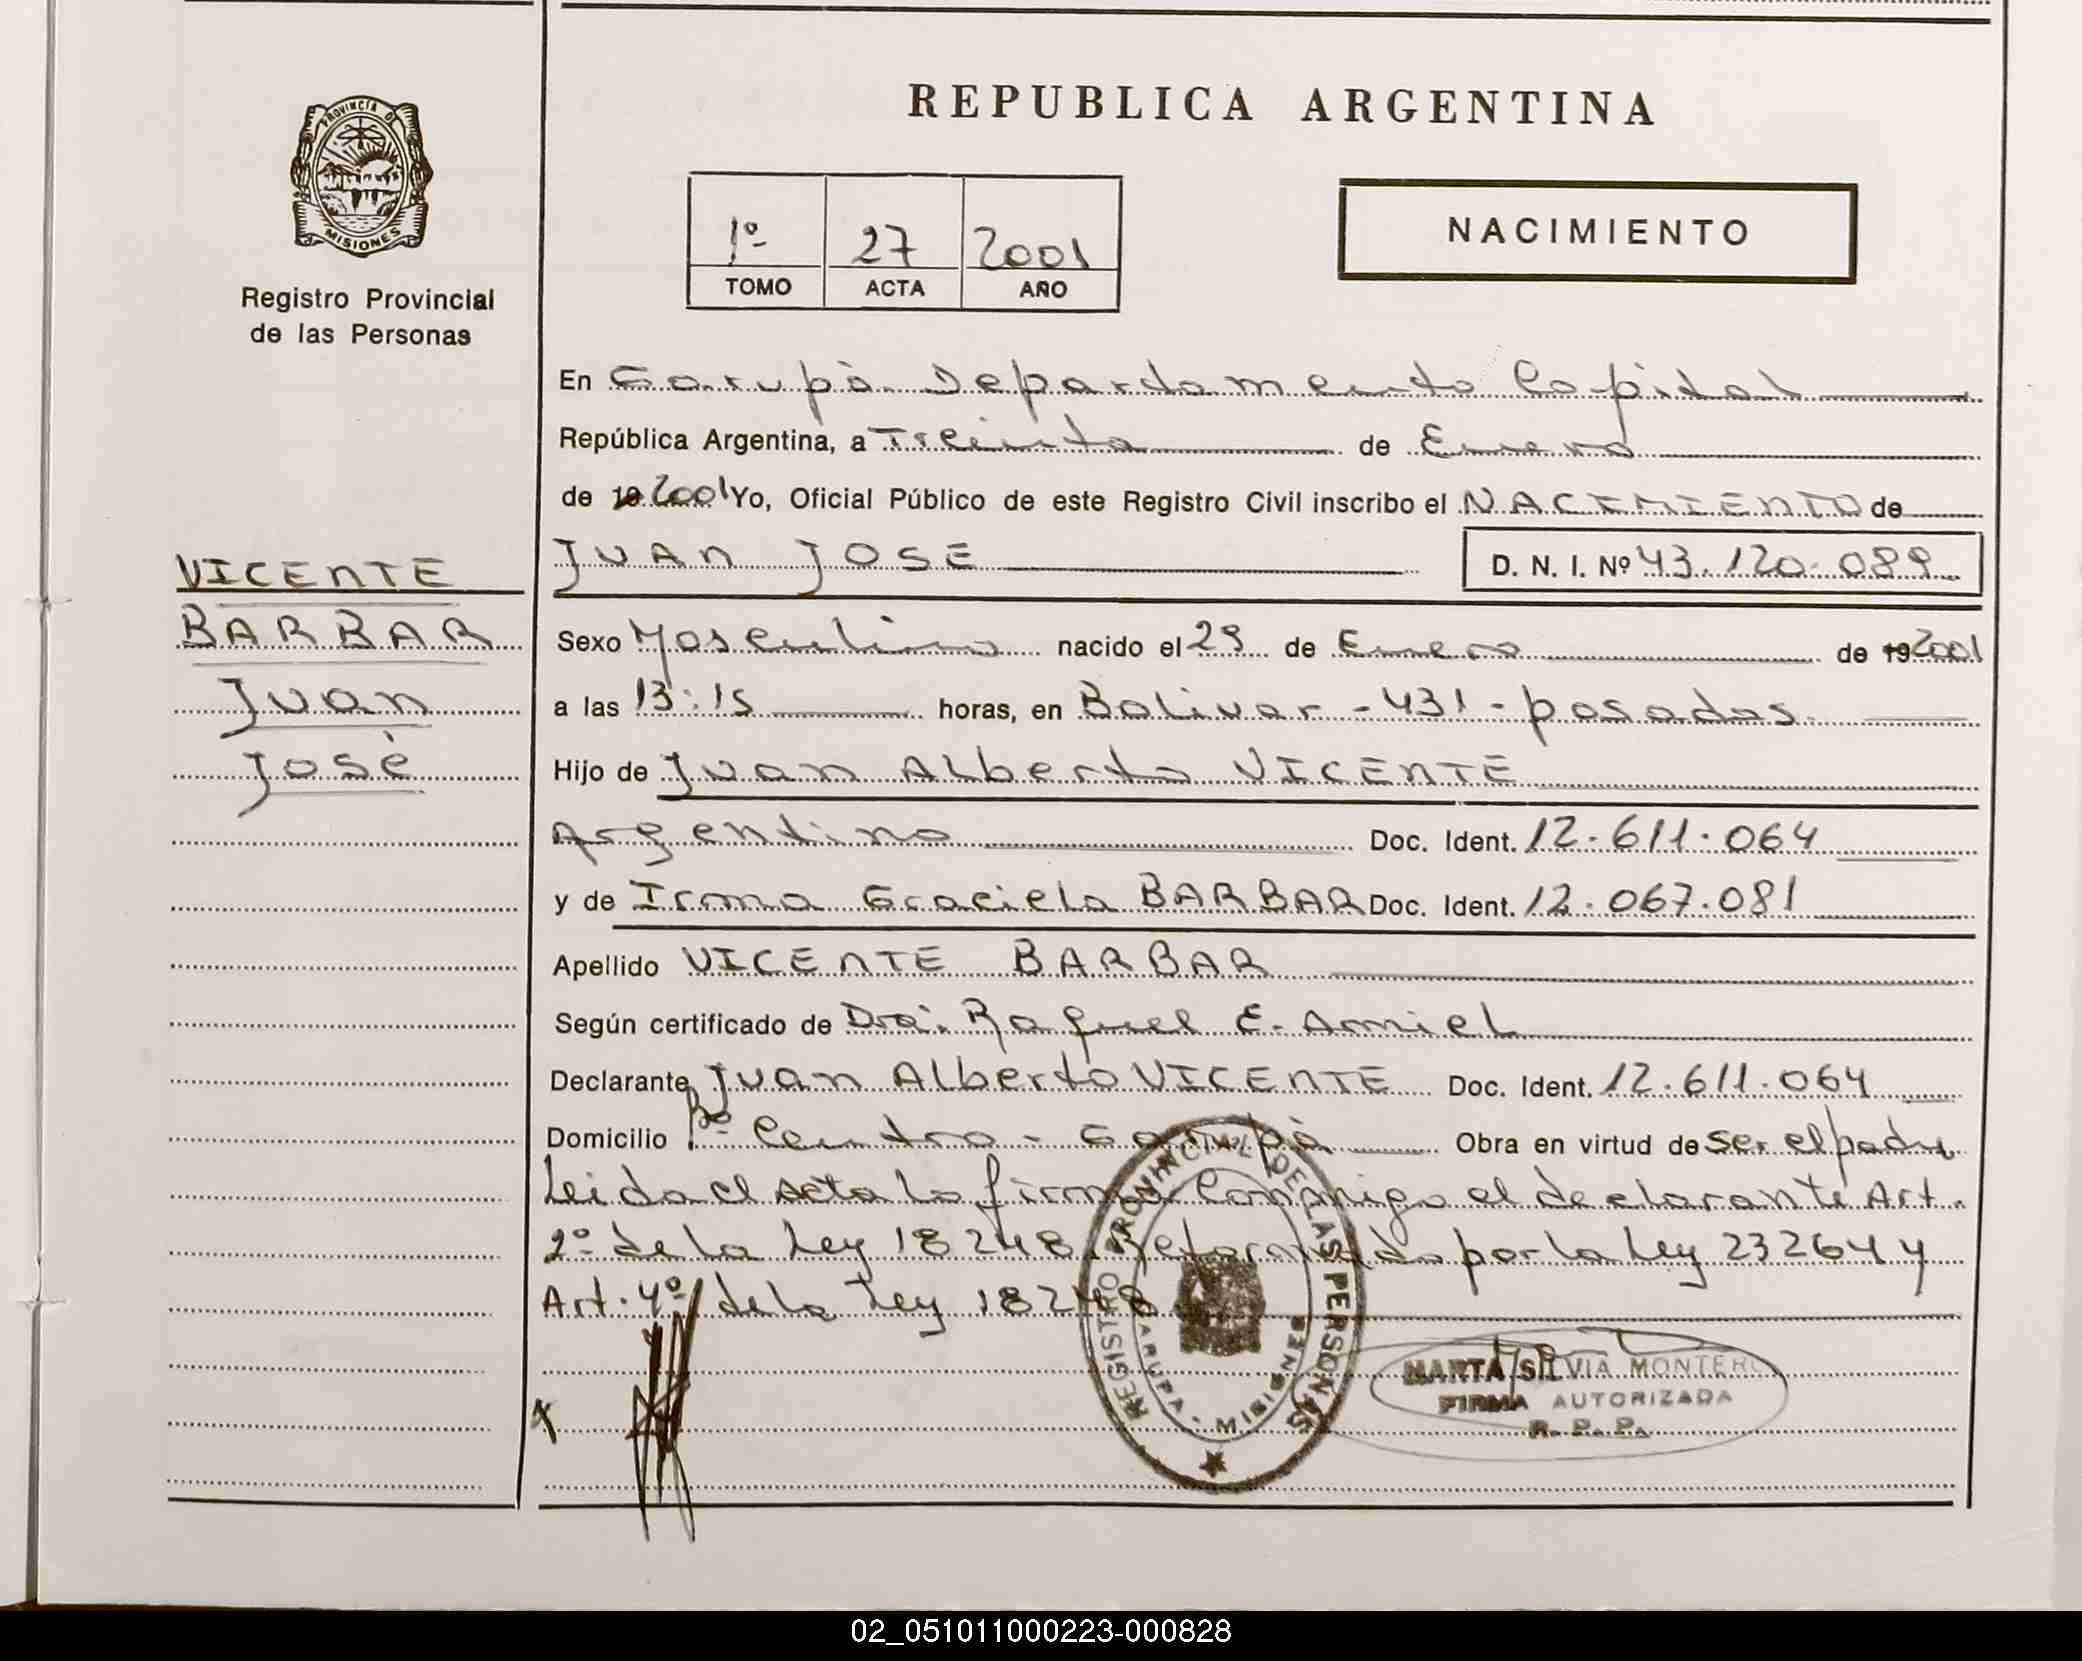 PROVINCIA DE
MISIONES
Registro Provincial
de las Personas
VICENTE
BARBAR
Juan
José
REPUBLICA ARGENTINA
1º 27 2001
TOMO ACTA AÑO
NACIMIENTO
En Garupá Departamento Capital
República Argentina, a Treinta de Enero
de 19 2001 Yo, Oficial Público de este Registro Civil inscribo el NACIMIENTO de
JUAN JOSE D. N. I. Nº 43.120.089
Sexo Masculino nacido el 29 de Enero de 19 2001
a las 13:15 horas, en Bolivar - 431 - posadas
Hijo de Juan Alberto VICENTE
Argentino Doc. Ident. 12.611.064
y de Irma Graciela BARBAR Doc. Ident. 12.067.081
Apellido VICENTE BARBAR
Según certificado de Dra. Raquel E. Amiel
Declarante Juan Alberto VICENTE Doc. Ident. 12.611.064
Domicilio Bº Centro - Garupá Obra en virtud de ser el padre
Leida el Acta la firma Conmigo el declarante Art.
2º de la Ley 18248 Reformado por la Ley 23264 y
Art. 4º de la Ley 18248
REGISTRO PROVINCIAL DE LAS PERSONAS
GARUPA - MISIONES
MARTA SILVIA MONTERO
FIRMA AUTORIZADA
R. P. P.
02_051011000223-000828